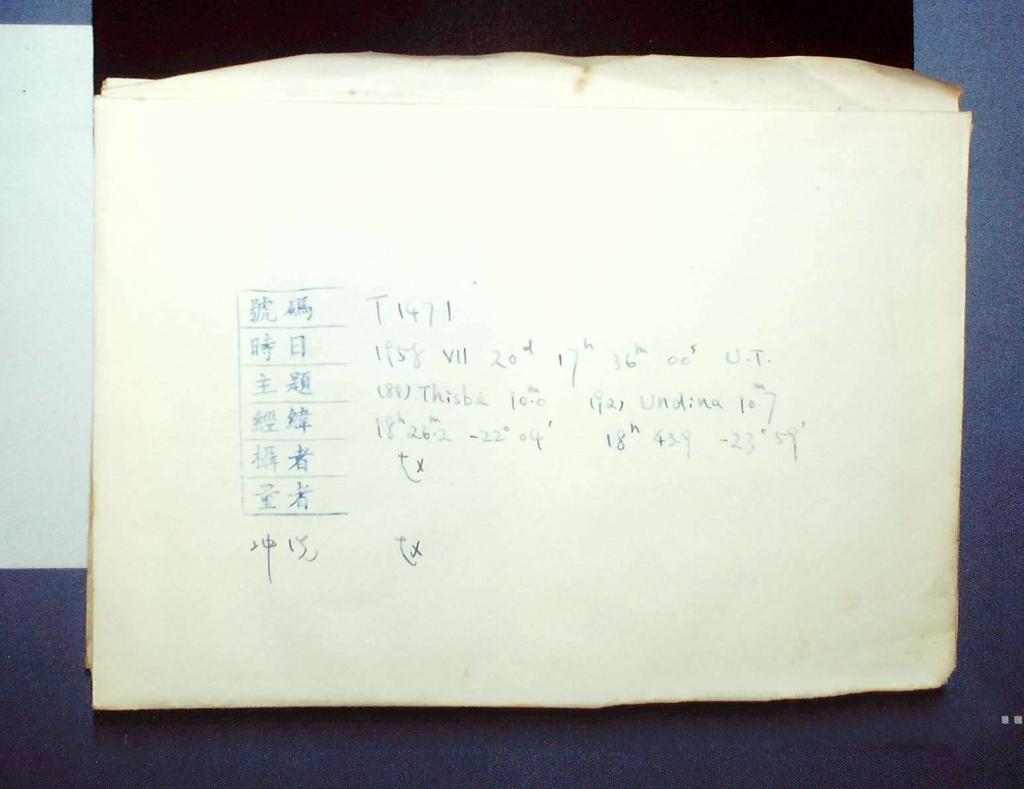 號碼 T 1471
時日 1958 VII 20ᵈ 17ʰ 36ᵐ 00ˢ U.T.
主題 (88) Thisbe 10ᵐ.0 (92) Undina 10ᵐ.7
經緯 18ʰ 26ᵐ.2 -22° 04' 18ʰ 43.9 -23° 59'
攝者
量者
冲洗